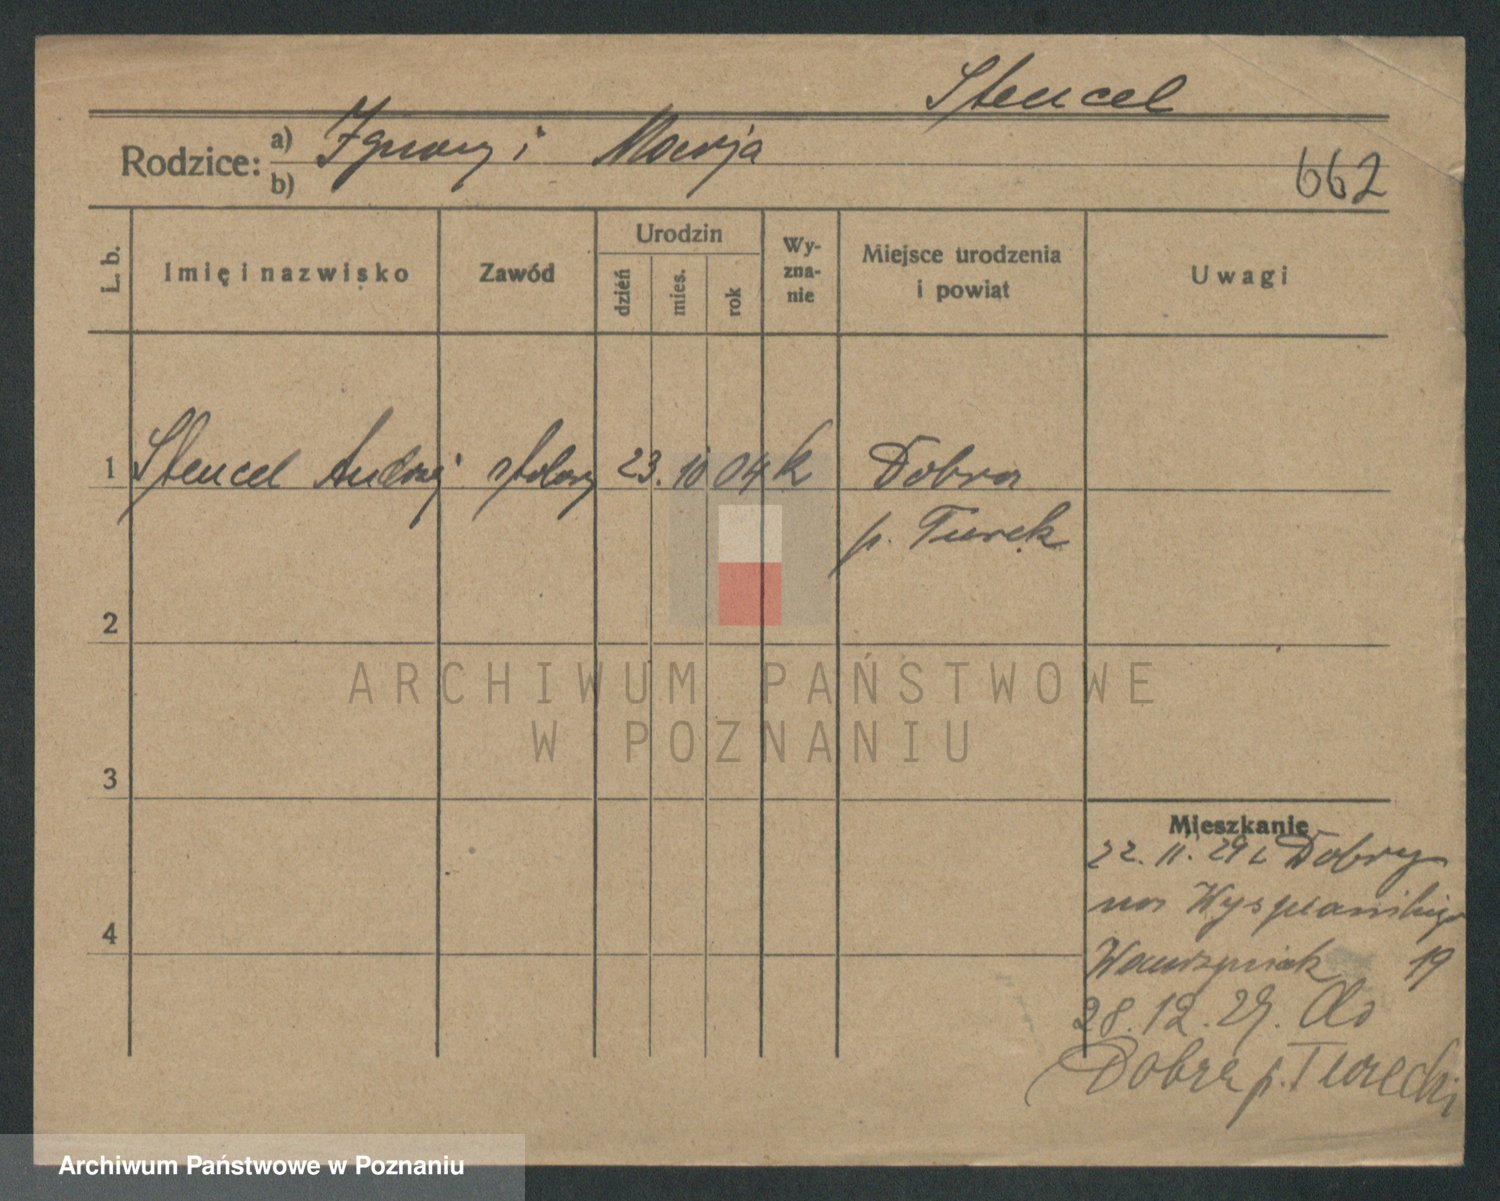 Stencel
Rodzice: a) Ignacy i Marja
b)
662
L. b.
Imię i nazwisko
Zawód
Urodzin
dzień
mies.
rok
Wy-
zna-
nie
Miejsce urodzenia
i powiat
Uwagi
1 Stencel Andrzej stolarz 23. 10 04 k Dobra
p. Turek
2
3
4
Mieszkanie
22. 11. 29 z Dobry
na Wyspiańskiego
Wawrzyniak 19
28. 12. 29. do
Dobra p. Turecki
ARCHIWUM PAŃSTWOWE
W POZNANIU
Archiwum Państwowe w Poznaniu